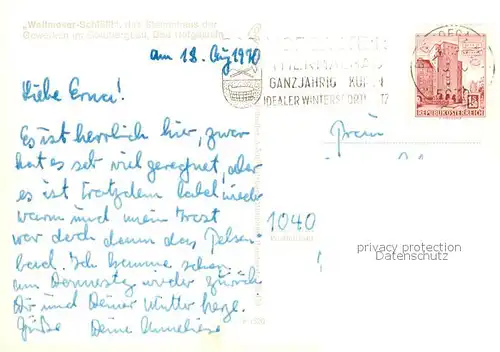 „Weitmoser-Schlößl", das Stammhaus der
Gewerken im Goldbergbau, Bad Hofgastein
am 18. Aug 1970
THERMALBAD
GANZJÄHRIG KUREN
IDEALER WINTERSPORTPLATZ
REPUBLIK ÖSTERREICH
Liebe Erna!
Es ist herrlich hier, zwar
hat es sehr viel geregnet, aber
es ist trotzdem dabei
warm und mein Trost
war doch dann das Felsen-
bad. Ich komme schon
am Donnerstag wieder zurück
Dir und Deiner Mutter herzl.
Grüße Deine Anneliese
Frau
1040
privacy protection
Datenschutz